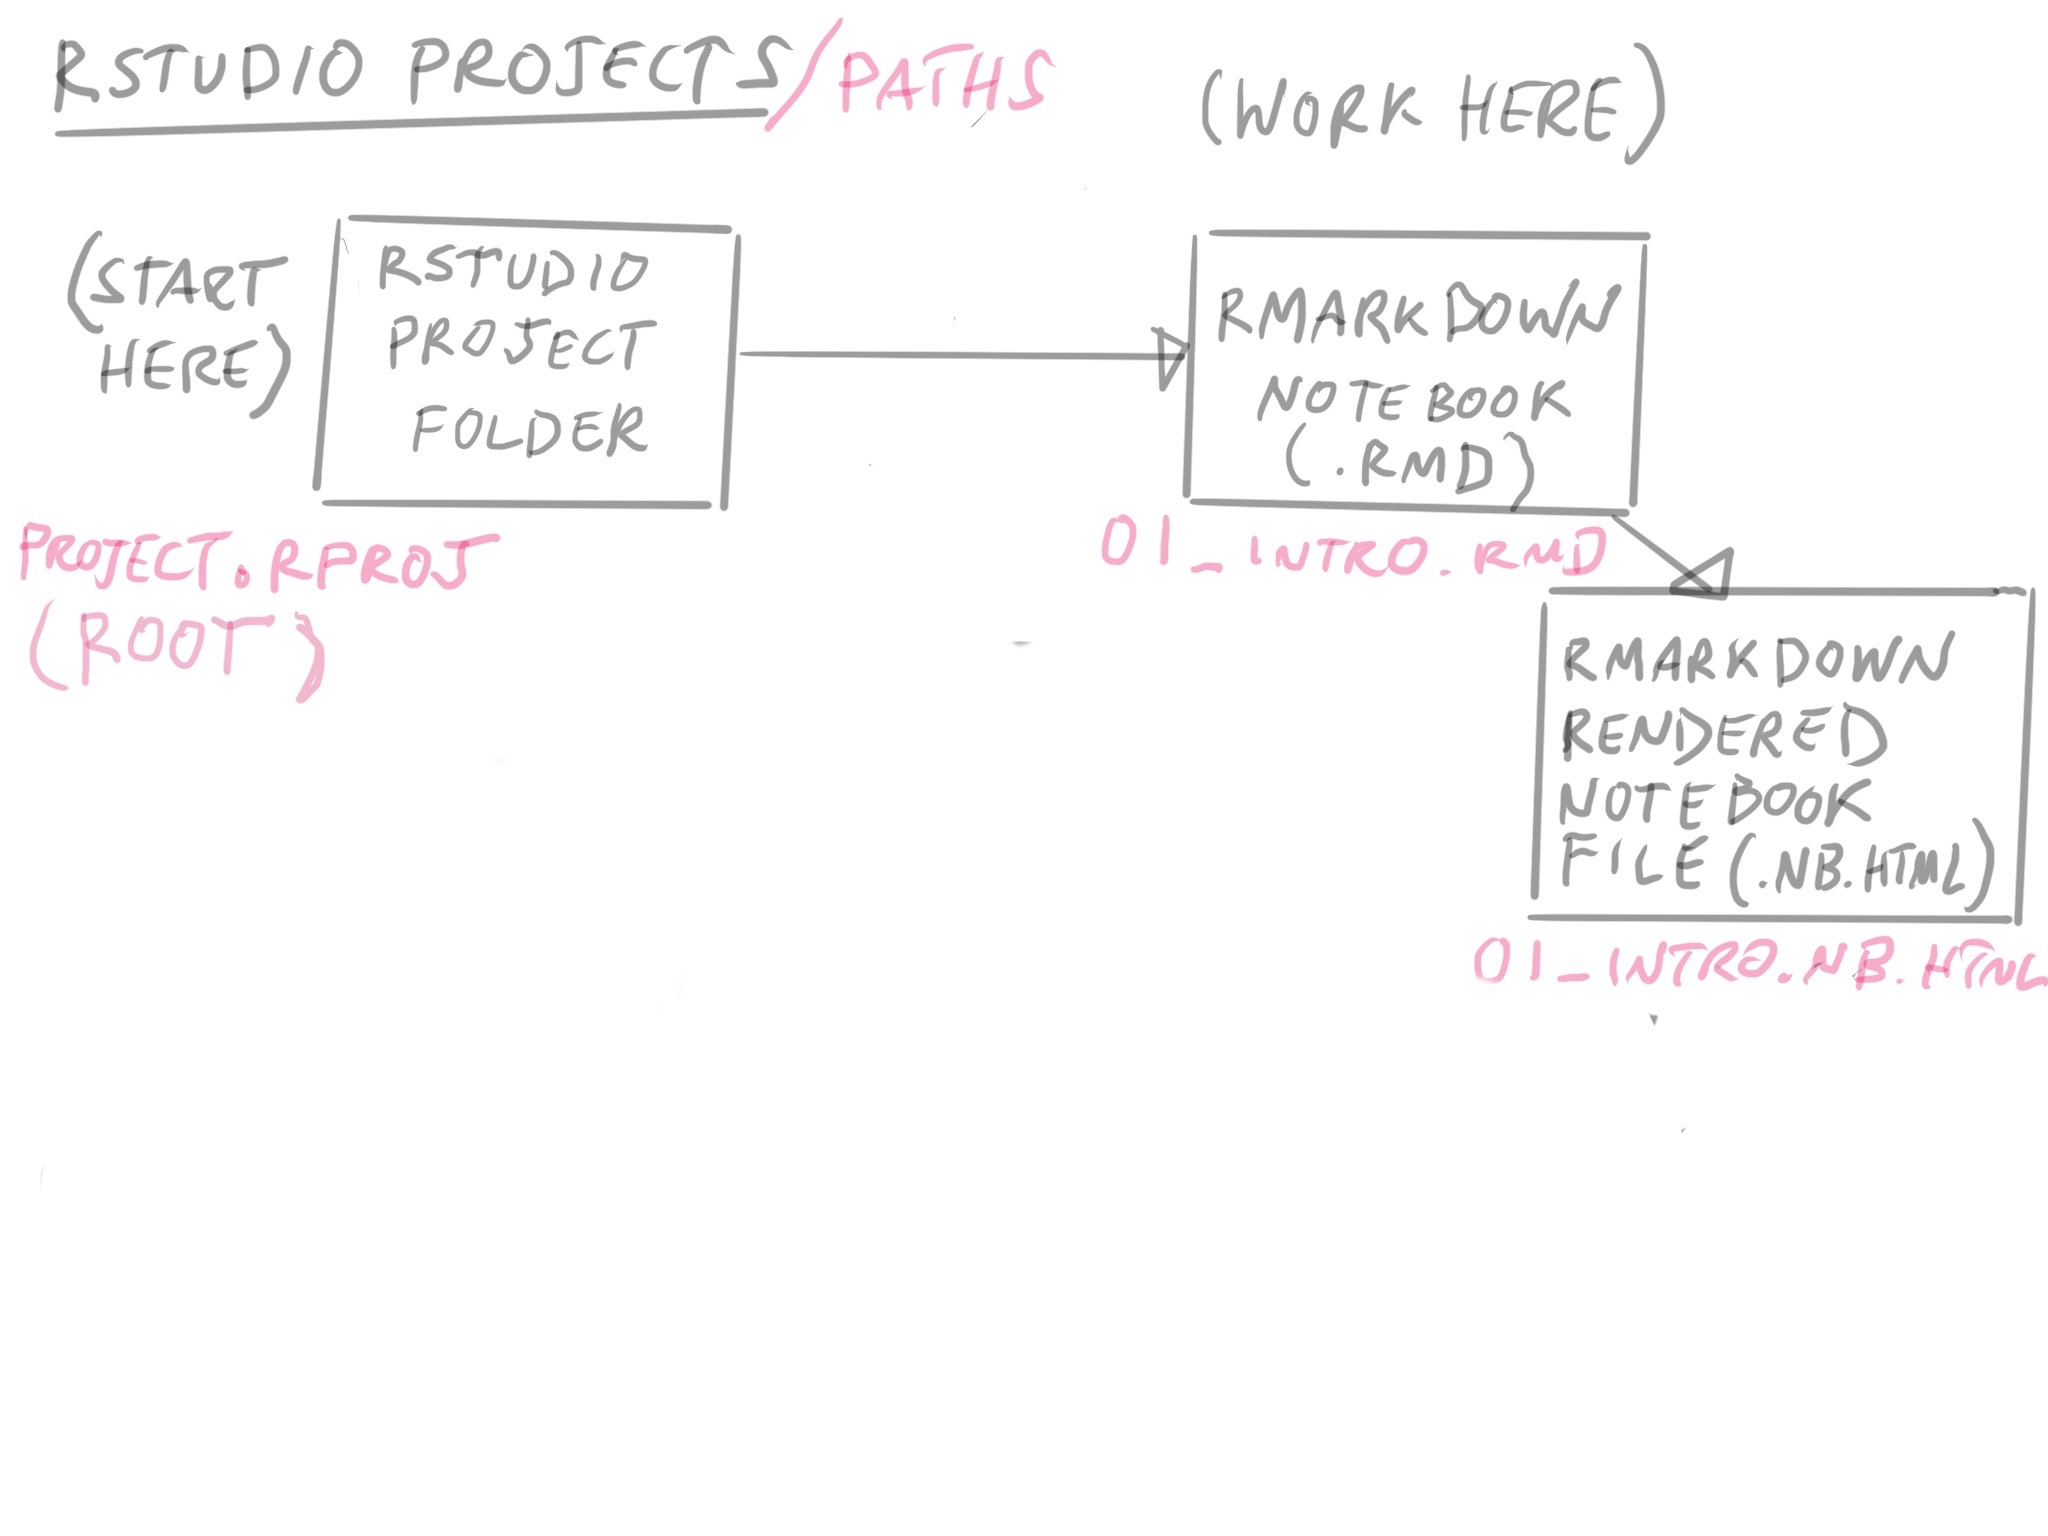 RSTUDIO PROJECTS/PATHS
(WORK HERE)
(START
HERE)
RSTUDIO
PROJECT
FOLDER
PROJECT.RPROJ
(ROOT)
RMARKDOWN
NOTEBOOK
(.RMD)
01_INTRO.RMD
RMARKDOWN
RENDERED
NOTEBOOK
FILE (.NB.HTML)
01_INTRO.NB.HTML